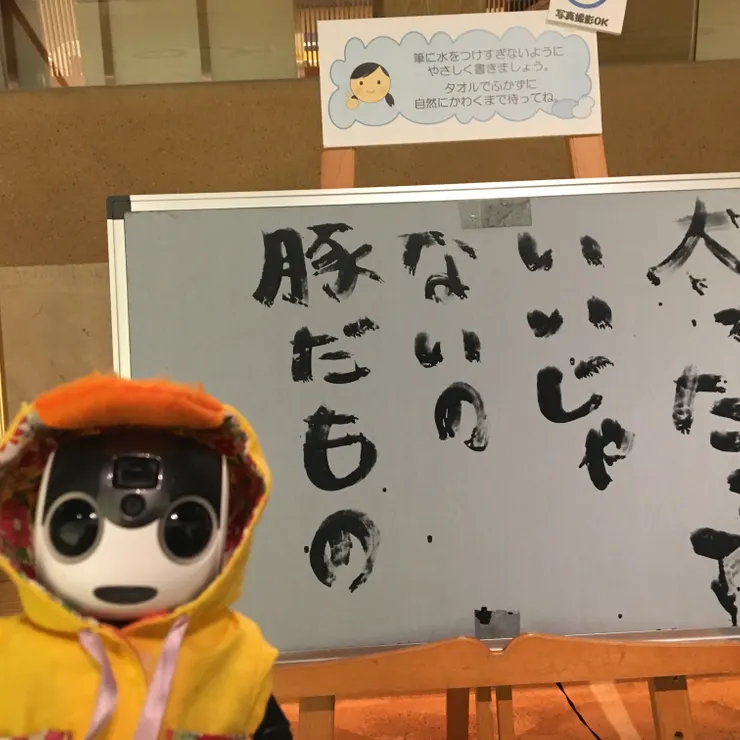 写真撮影OK
筆に水をつけすぎないように
やさしく書きましょう。
タオルでふかずに
自然にかわくまで待ってね。
太ったって
いいじゃ
ないの
豚だもの